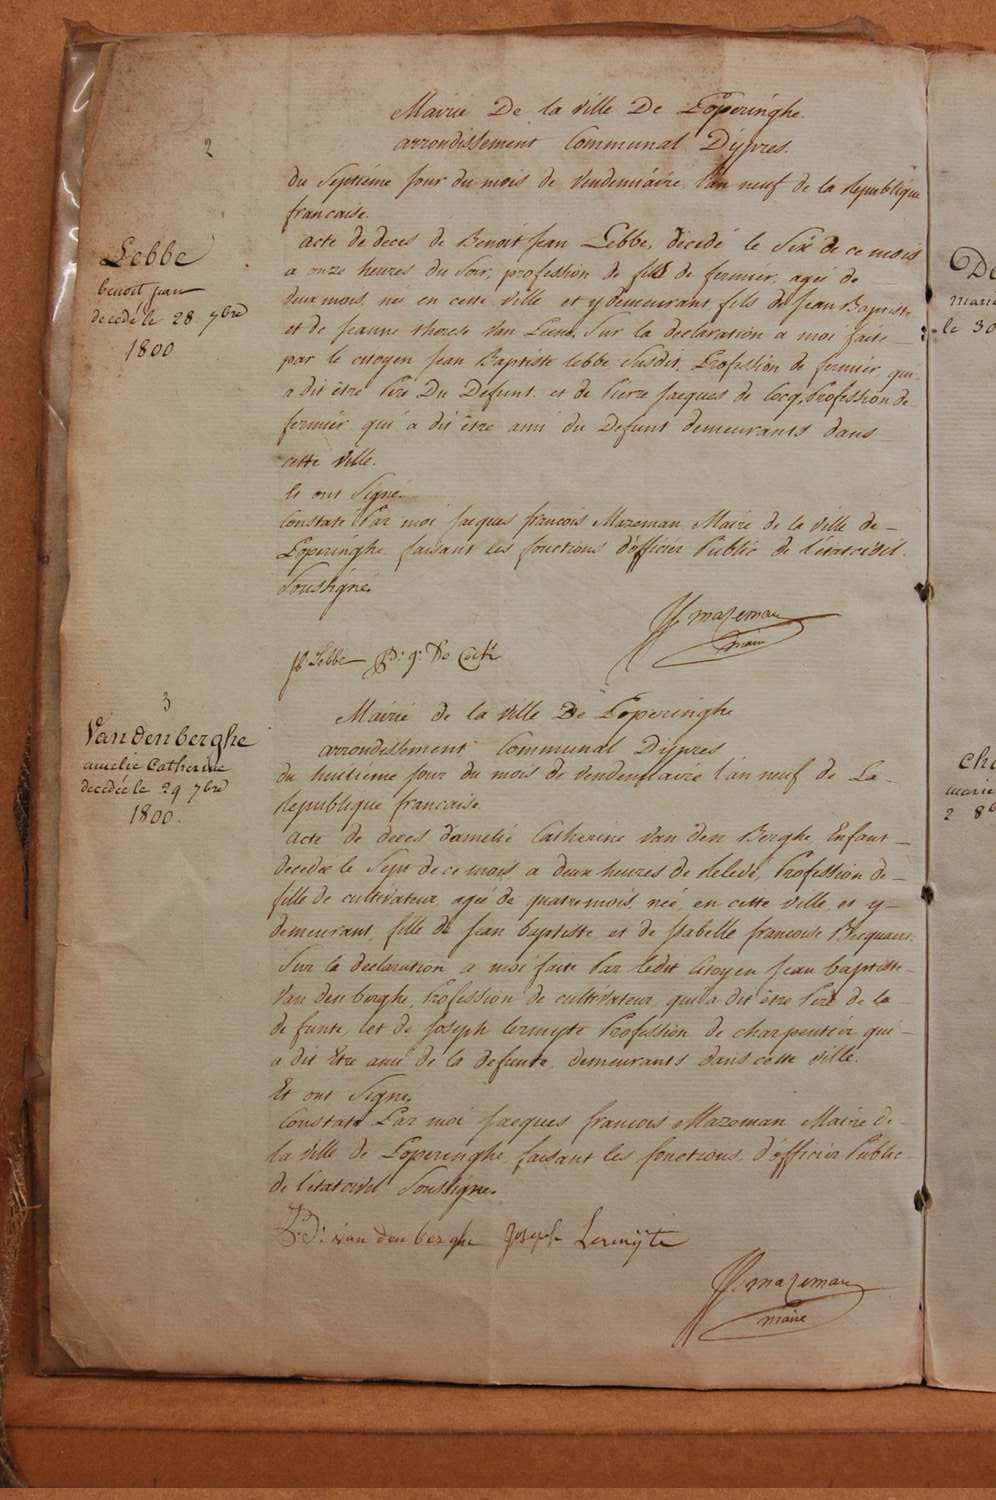 2
Mairie De la ville De Poperinghe.
arrondissement Communal D'ypres.
du Septiéme jour du mois de vendemiaire l'an neuf de la Republique
francaise.
Lebbe
benoit jean
decedé le 28 7bre
1800
acte de deces de Benoit jean Lebbe, décédé le Six de ce mois
a onze heures du Soir, profession de fils de fermier, agée de
deux mois, né en cette ville et y demeurant fils de jean Baptiste
et de jeanne therese van Sur la declaration a moi faite
par le citoyen jean Baptiste lebbe Susdit, Profession de fermier qui
a dit être Pere Du Defunt et de Pierre jacques de Cocq, Profession de
fermier qui a dit être ami du Defunt demeurants dans
cette ville.
Et ont Signé.
Constaté Par moi jacques francois Mazeman Maire de la ville de
Poperinghe faisant les fonctions d'officier Public de l'état civil
Soussigné.
mazeman
maire
jb Lebbe P: j: De Cock
3
Mairie de la ville De Poperinghe
arrondissement Communal D'ypres
Vandenberghe
amelie Catherine
decedée le 29 7bre
1800.
du huitieme jour du mois de vendemiaire l'an neuf de La
Republique francaise
acte de deces d'amelie Catherine van den Berghe Enfant
decedée le Sept de ce mois a deux heures de relevé, Profession de
fille de cultivateur, agée de quatre mois, née, en cette ville, et y
demeurant, fille de jean baptiste, et de jsabelle francoise Becquart.
Sur la declaration a moi faite Par ledit Citoyen jean baptiste
van den berghe, Profession de cultivateur, qui a dit être Pere de la
defunte, et de joseph Lermyte Profession de charpentier qui
a dit Etre ami de la defunte, demeurants dans cette ville.
Et ont Signé.
Constaté Par moi jacques francois Mazeman Maire de
la ville de Poperinghe faisant les fonctions d'officier Public
de l'etat civil Soussigné.
van den berghe joseph Lermÿte
mazeman
maire
De
marie
le 30
cha
marie
2 8b